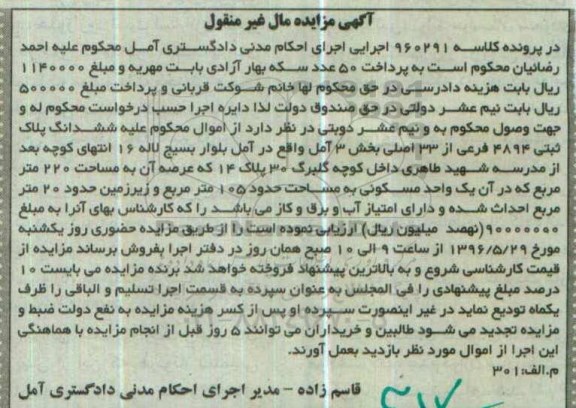 آگهی مزایده مال غیر منقول
در پرونده کلاسه ۹۶۰۲۹۱ اجرایی اجرای احکام مدنی دادگستری آمل محکوم علیه احمد
رضائیان محکوم است به پرداخت ۵۰ عدد سکه بهار آزادی بابت مهریه و مبلغ ۱۱۴۰۰۰۰
ریال بابت هزینه دادرسی در حق محکوم لها خانم شوکت قربانی و پرداخت مبلغ ۵۰۰۰۰۰
ریال بابت نیم عشر دولتی در حق صندوق دولت لذا دایره اجرا حسب درخواست محکوم له و
جهت وصول محکوم به و نیم عشر دوبتی در نظر دارد از اموال محکوم علیه ششدانگ پلاک
ثبتی ۴۸۹۴ فرعی از ۳۳ اصلی بخش ۳ آمل واقع در آمل بلوار بسیج لاله ۱۶ انتهای کوچه بعد
از مدرسه شهید طاهری داخل کوچه گلبرگ ۳۰ پلاک ۱۴ که عرصه آن به مساحت ۲۲۰ متر
مربع که در آن یک واحد مسکونی به مساحت حدود ۱۰۵ متر مربع و زیرزمین حدود ۲۰ متر
مربع احداث شده و دارای امتیاز آب و برق و گاز می باشد را که کارشناس بهای آنرا به مبلغ
۹۰۰۰۰۰۰۰۰ (نهصد میلیون ریال) ارزیابی نموده است را از طریق مزایده حضوری روز یکشنبه
مورخ ۱۳۹۶/۵/۲۹ از ساعت ۹ الی ۱۰ صبح همان روز در دفتر اجرا بفروش برساند مزایده از
قیمت کارشناسی شروع و به بالاترین پیشنهاد فروخته خواهد شد برنده مزایده می بایست ۱۰
درصد مبلغ پیشنهادی را فی المجلس به عنوان سپرده به قسمت اجرا تسلیم و الباقی را ظرف
یکماه تودیع نماید در غیر اینصورت سپرده او پس از کسر هزینه مزایده به نفع دولت ضبط و
مزایده تجدید می شود طالبین و خریداران می توانند ۵ روز قبل از انجام مزایده با هماهنگی
این اجرا از اموال مورد نظر بازدید بعمل آورند.
م.الف: ۳۰۱
قاسم زاده - مدیر اجرای احکام مدنی دادگستری آمل